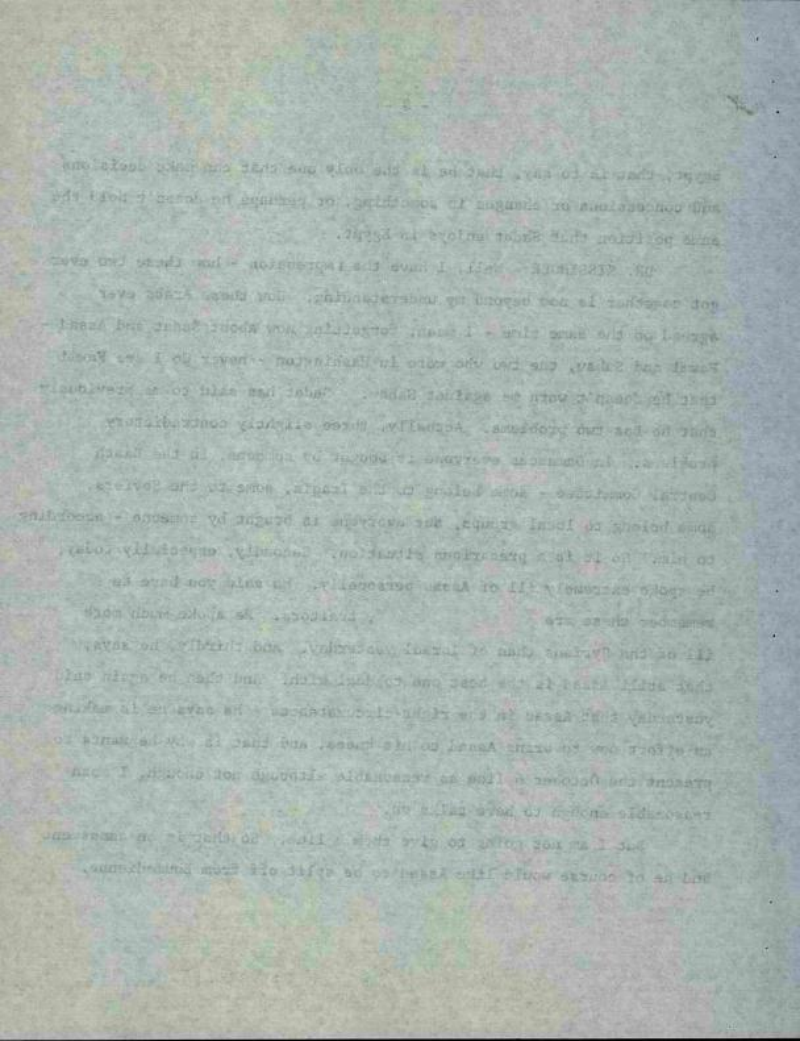 - 3 -
Egypt, that is to say, that he is the only one that can make decisions
and concessions or changes in something, or perhaps he doesn't hold the
same position that Sadat enjoys in Egypt.
DR. KISSINGER - Well, I have the impression - how these two ever
got together is now beyond my understanding. How these Arabs ever
agreed on the same time - I mean, forgetting now about Sadat and Assad -
Fawmi and Sabay, the two who were in Washington - never do I see Fawmi
that he doesn't warn me against Saba . Sadat has said to me previously
that he has two problems. Actually, three slightly contradictory
problems. In Damascus everyone is bought by someone, in the Baath
Central Committee - some belong to the Iraqis, some to the Soviets,
some belong to local groups, but everyone is bought by someone - according
to him. So it is a precarious situation. Secondly, especially today,
he spoke extremely ill of Assad personally. He said you have to
remember these are , traitors. He spoke much more
ill of the Syrians than of Israel yesterday. And thirdly, he says,
that still Assad is the best one to deal with. And then he again said
yesterday that Assad in the right circumstances - he says he is making
an effort now to bring Assad to his knees, and that is why he wants to
present the October 6 line as reasonable although not enough, I mean
reasonable enough to have talks on.
But I am not going to give them a line. So that is an assessment
and he of course would like Assad to be split off from Boumedienne,